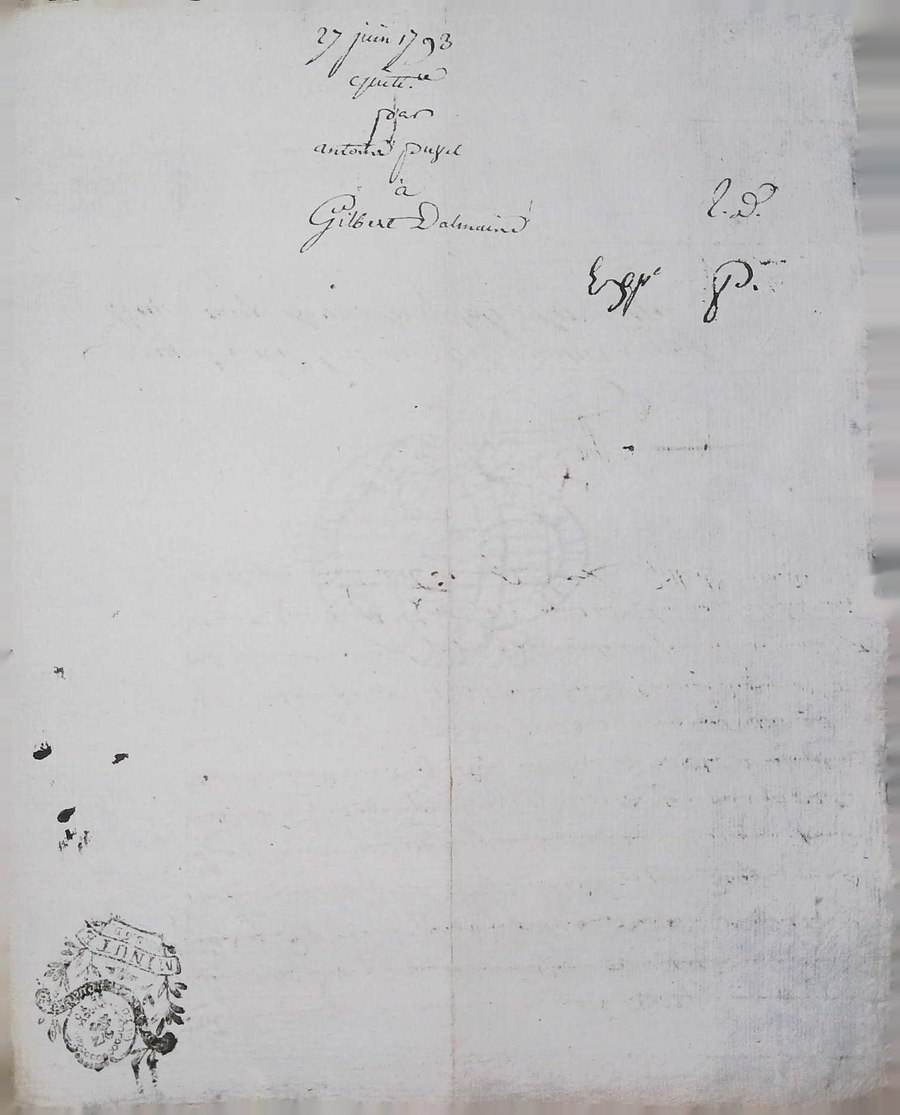 27 juin 1793
quitt.ce
par
antoine pugel
à
Gilbert Dalmaine
2. D.
Exp.é P.
MINUT